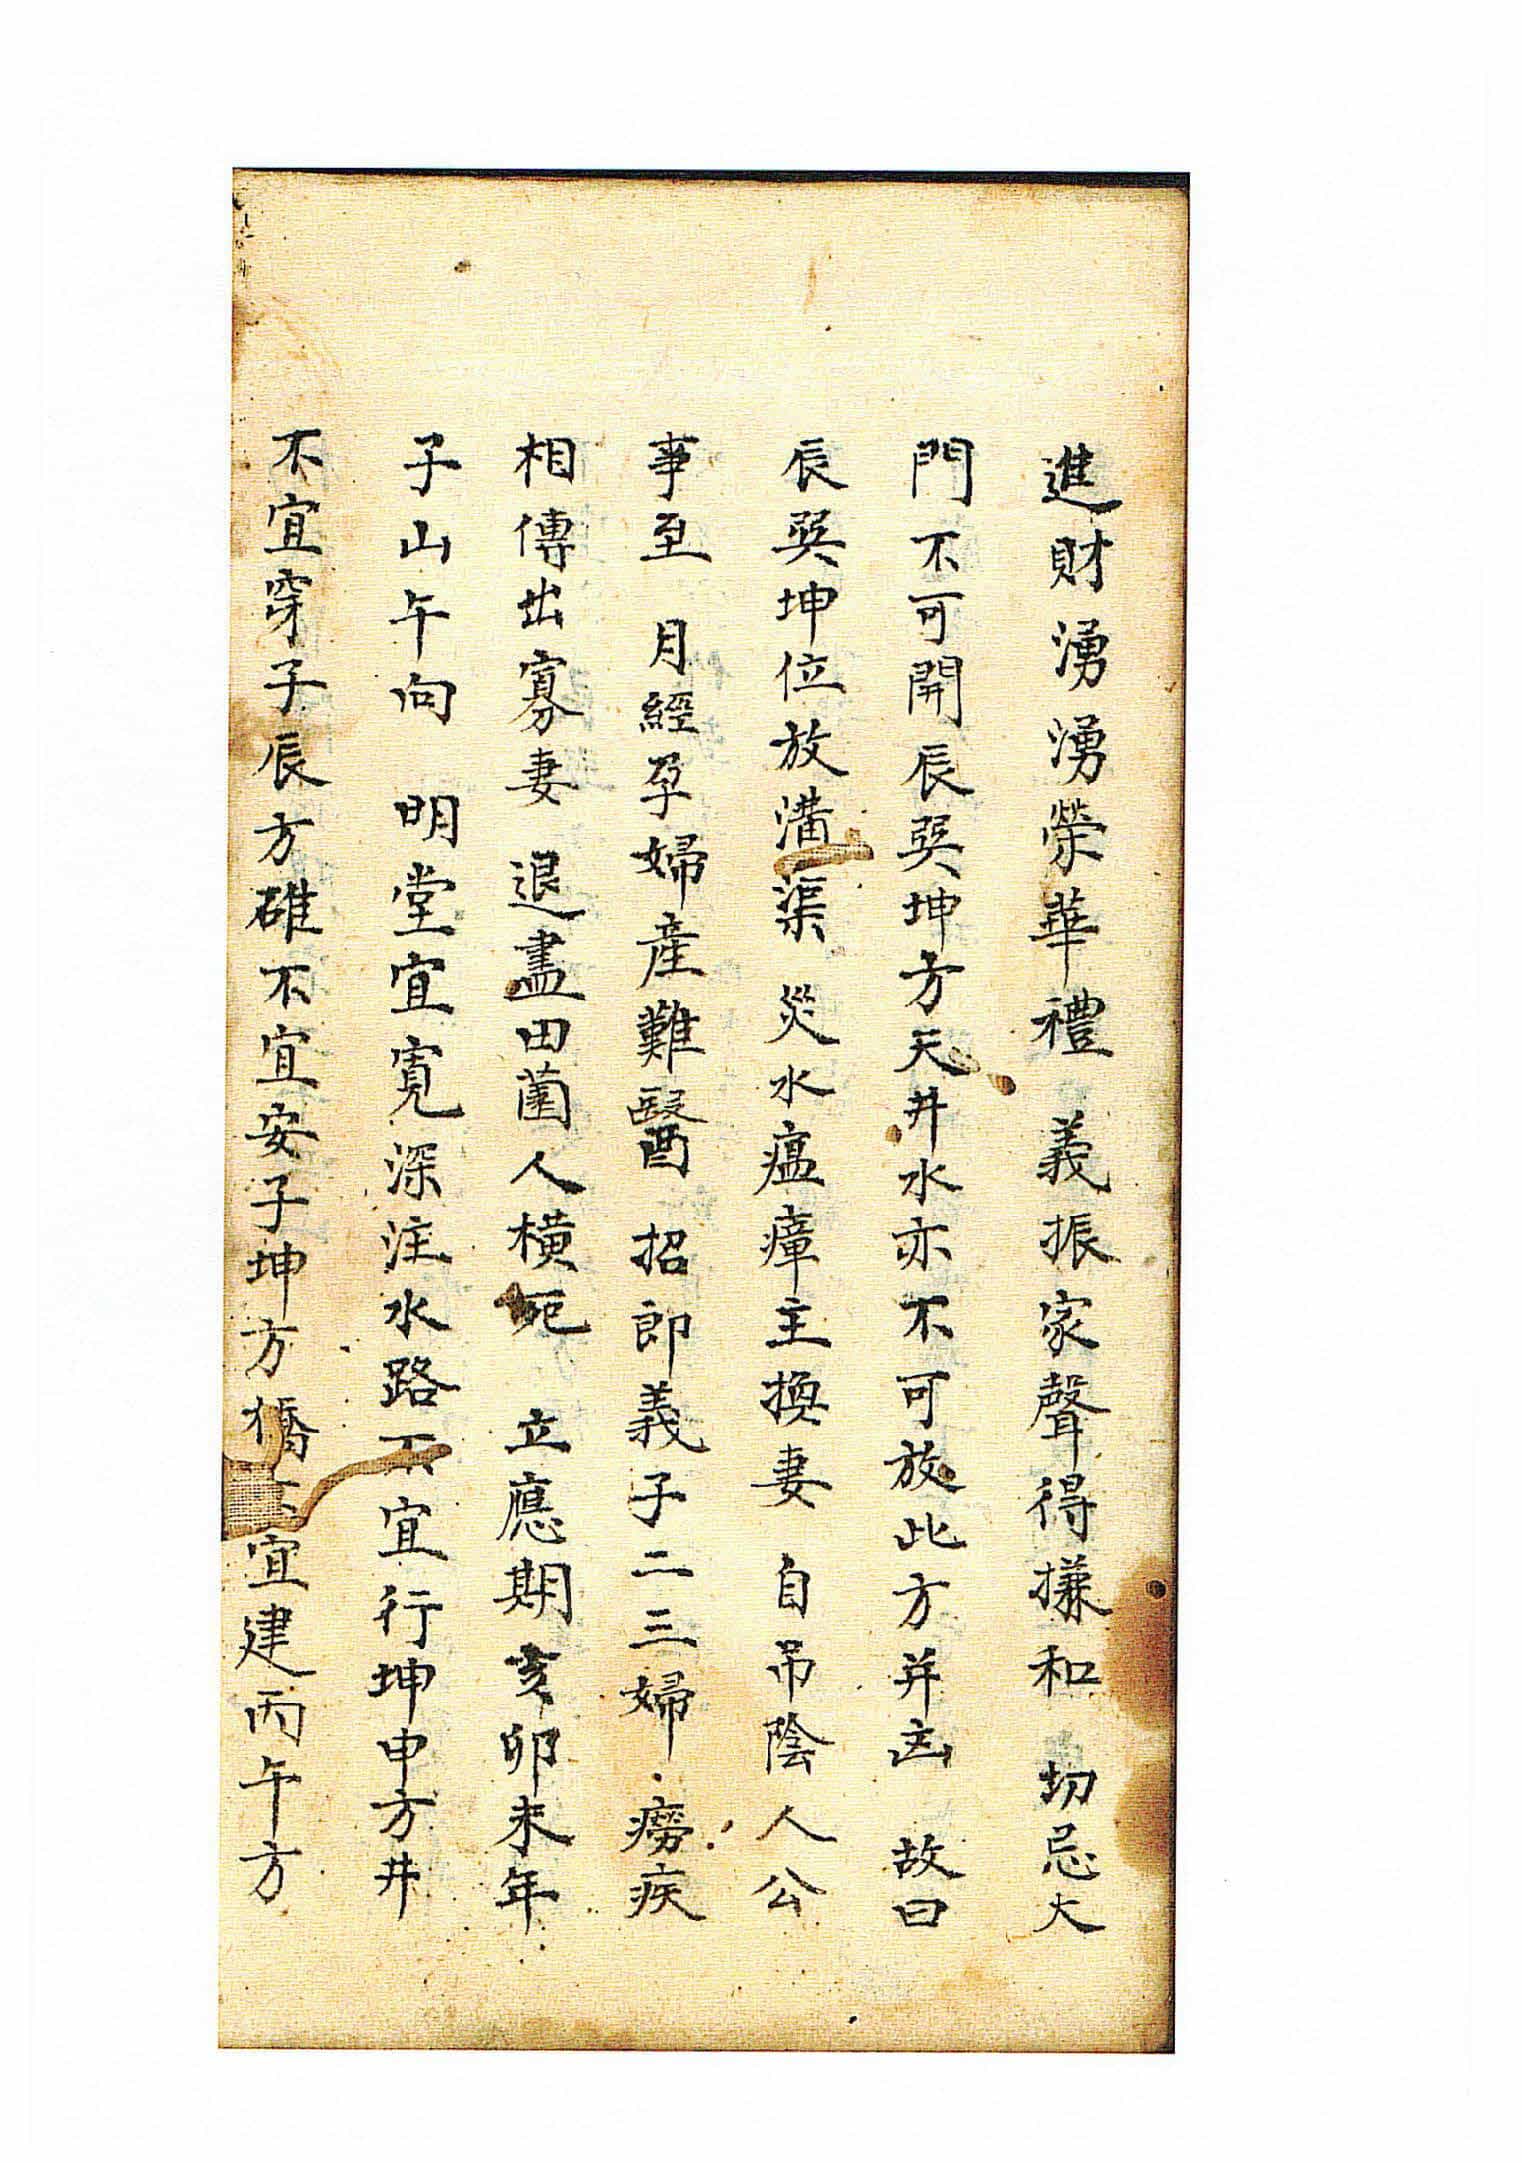 進財湧湧榮華禮 義振家聲得搛和 切忌大
門不可開辰巽坤方天井水亦不可放此方并凶 故曰
辰巽坤位放溝渠 災水瘟瘴主換妻 自吊陰人公
事至 月經孕婦產難醫 招郎義子二三婦 癆疾
相傳出寡妻 退盡田園人橫死 立應期亥卯未年
子山午向 明堂宜寬深注水路不宜行坤申方井
不宜穿子辰方碓不宜安子坤方橋不宜建丙午方